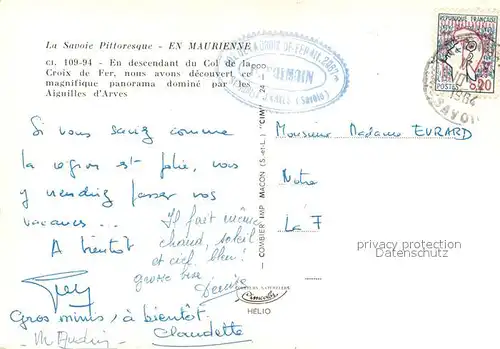 La Savoie Pittoresque - EN MAURIENNE
CI. 109-94 - En descendant du Col de la
Croix de Fer, nous avons découvert ce
magnifique panorama dominé par les
Aiguilles d'Arves
Si vous saviez comme
la région est jolie, vous
y viendriez passer vos
vacances ...
A bientôt
Il fait même
chaud, soleil
et ciel bleu!
grosse bise
Denise
Gros mimis, à bientôt.
Claudette
COMBIER IMP. MACON (S.-et-L.) "CIM"
Cimcolor
HÉLIO
REPUBLIQUE FRANÇAISE
POSTES 0,20
1964
SAVOIE
Monsieur Madame EVRARD
Notre
La F
privacy protection
Datenschutz